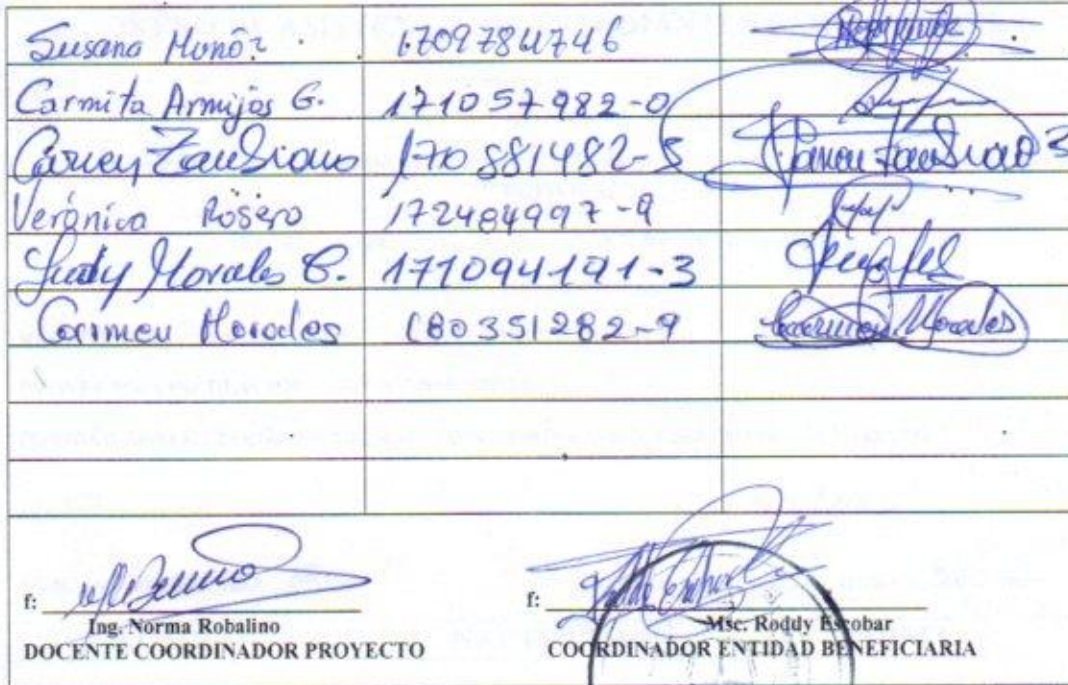 Susana Munóz 1709784746
Carmita Armijos G. 171057982-0
Carmen Zambrano 170881482-3 Carmen Zambrano
Verónica Rosero 172484997-9
Judy Morales C. 171094191-3
Carmen Morales 180351282-9 Carmen Morales
f: f:
Ing. Norma Robalino Msc. Roddy Escobar
DOCENTE COORDINADOR PROYECTO COORDINADOR ENTIDAD BENEFICIARIA